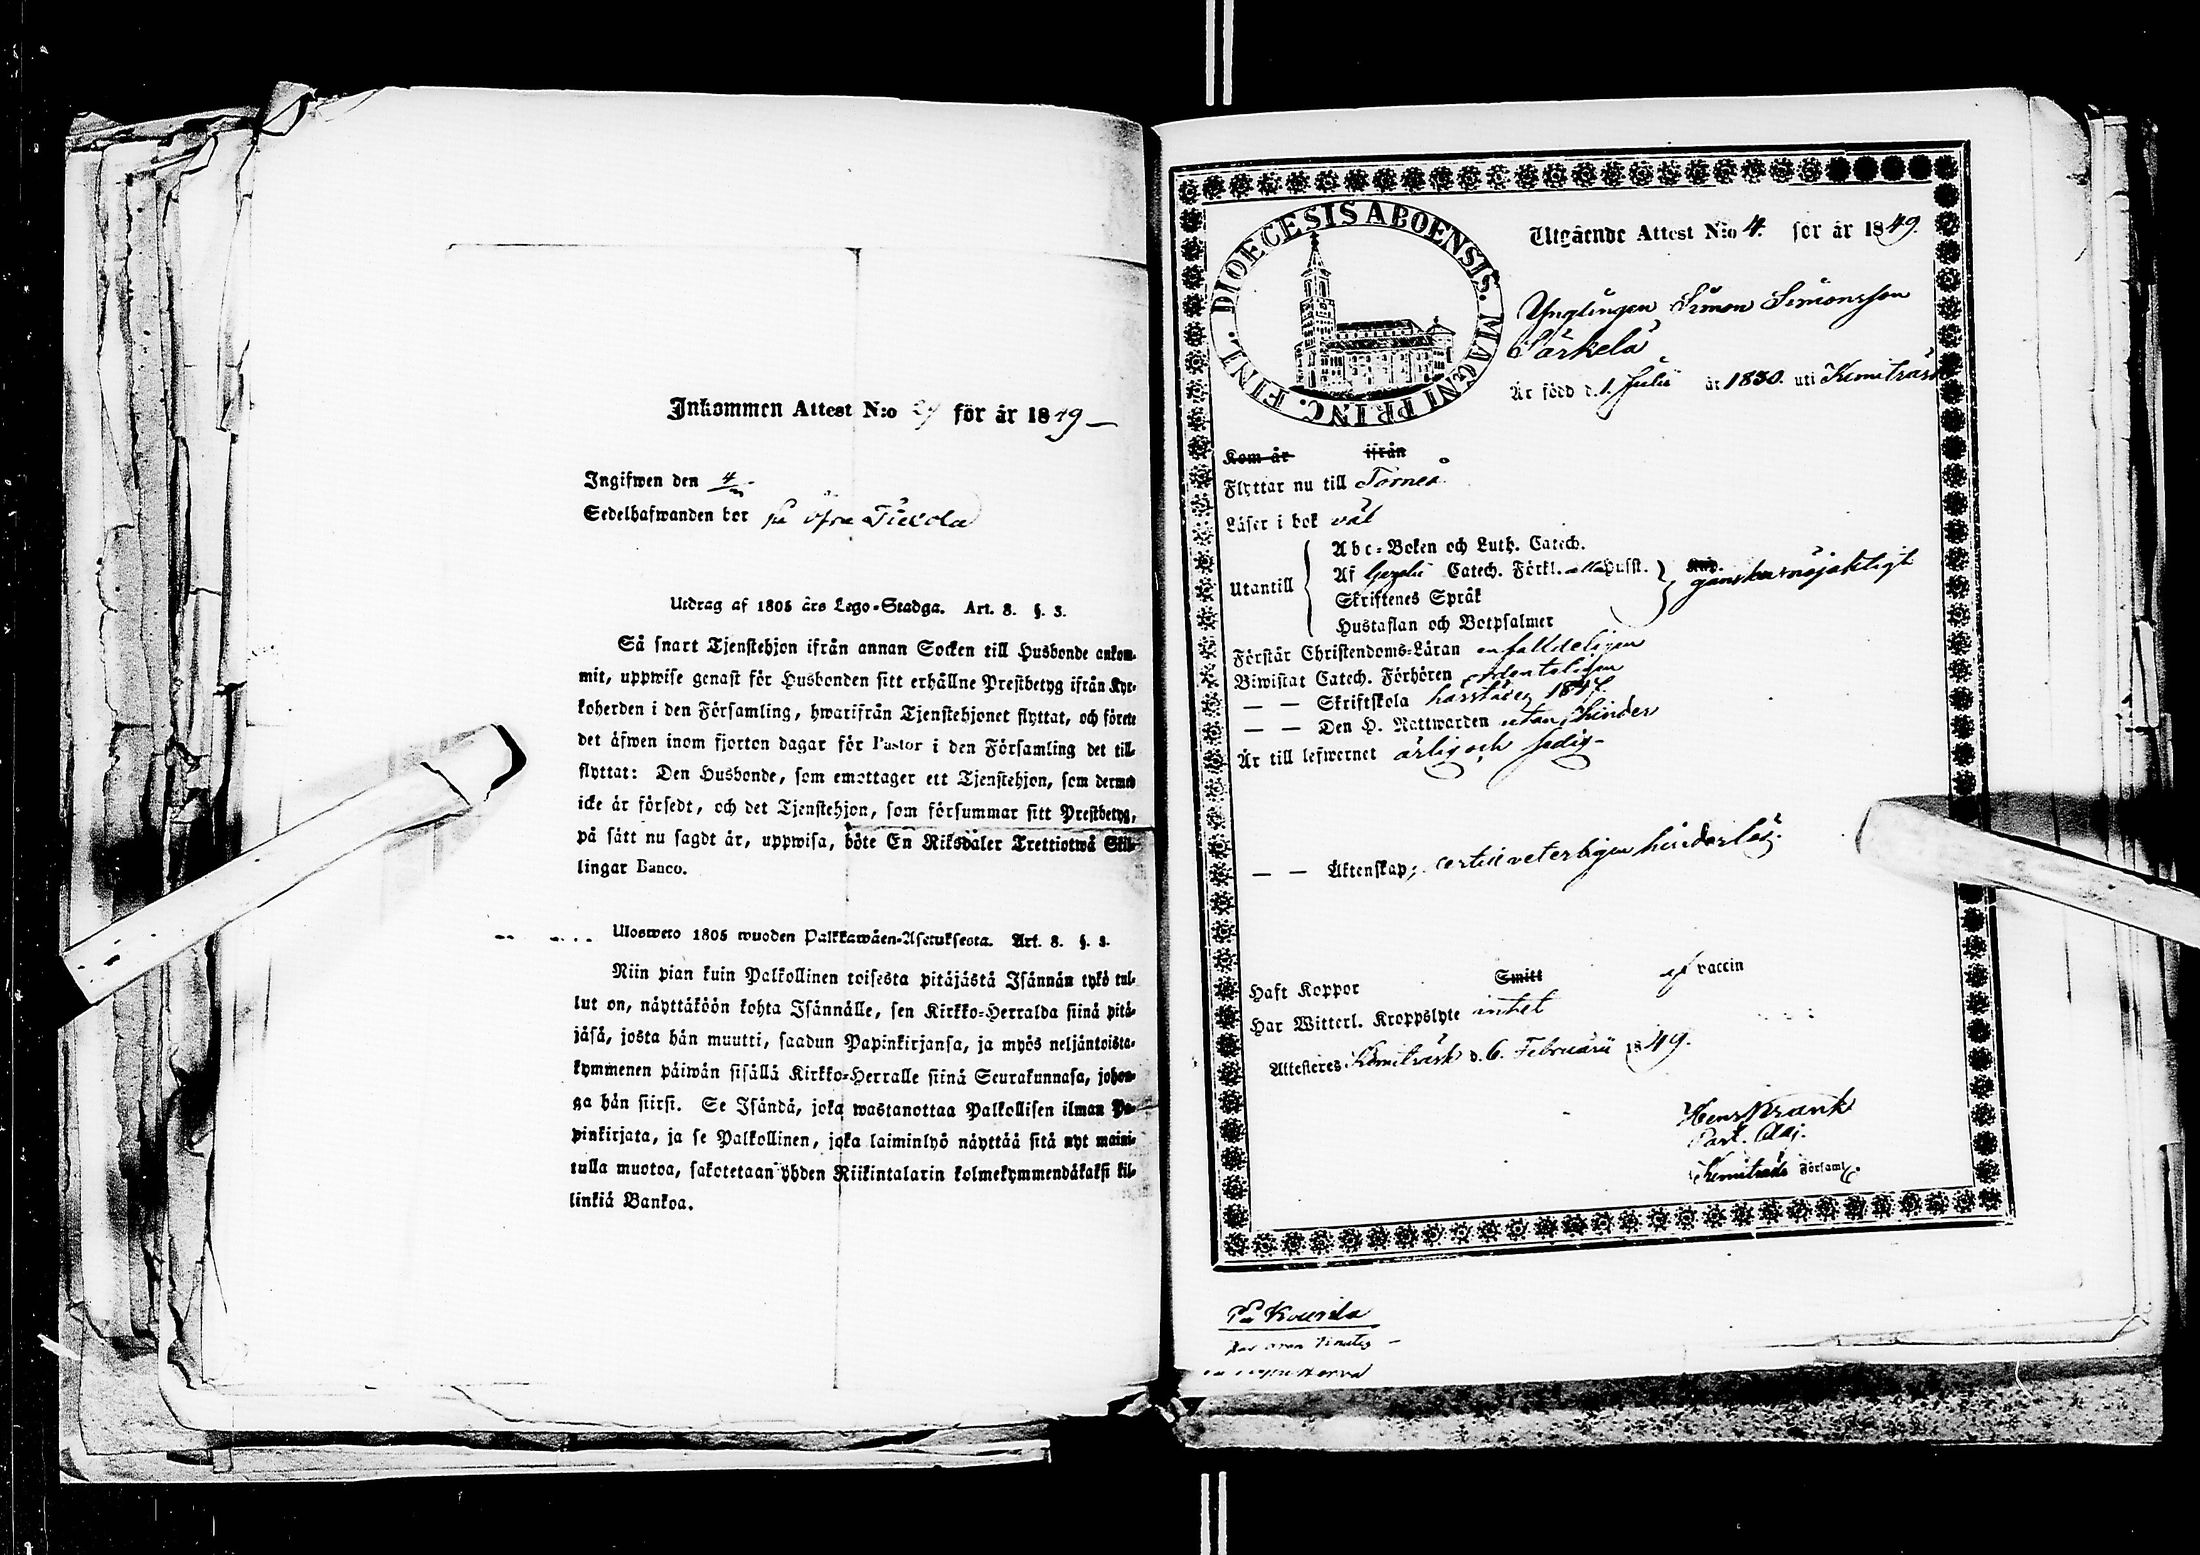 Inkommen Attest N:o för år 1849
Ingifwen den 4
Sedelhafwanden bor på öfra
Utdrag af 1805 års Lego-Stadga. Art. 8. §. 3.
Så snart Tjenstehjon ifrån annan Socken till Husbonde ankom-
mit, uppwise genast för Husbonden sitt erhållne Prestbetyg ifrån Kyr-
koherden i den Församling, hwarifrån Tjenstehjonet flyttat, och förete
det äfwen inom fjorton dagar för Pastor i den Församling det till-
flyttat: Den Husbonde, som emottager ett Tjenstehjon, som dermed
icke är försedt, och det Tjenstehjon, som försummar sitt Prestbetyg,
på sätt nu sagdt är, uppwisa, böte En Riksdaler Trettiotwå Skil-
lingar Banco.
Ulosweto 1805 wuoden Palkkawäen-Asetuksesta. Art. 8. §. 3.
Niin pian kuin Palkollinen toisesta pitäjästä Isännän tykö tul-
lut on, näyttäköön kohta Isännälle, sen Kirkko-Herralda siinä pitä-
jäsä, josta hän muutti, saadun Papinkirjansa, ja myös neljäntoista-
kymmenen päiwän sisällä Kirkko-Herralle siinä Seurakunnasa, johon-
ga hän siirsi. Se Isändä, joka wastanottaa Palkollisen ilman Pa-
pinkirjata, ja se Palkollinen, joka laiminlyö näyttää sitä nyt maini-
tulla muotoa, sakotetaan yhden Riikintalarin kolmekymmendäkaksi kil-
linkiä Bankoa.
DIOECESIS ABOENSIS. MAGNI PRINC. FINL.
Utgående Attest N:o 4. för år 1849.
Ynglingen Simon Simonsson
Särkelä
Är född d. 1. Julii år 1830. uti Kemiträsk
Kom år ifrån
Flyttar nu till Torneå
Läser i bok väl
Abc-Boken och Luth. Catech.
Af Catech. Förkl. Husst.
Utantill ganska nöjaktigt
Skriftenes Språk
Hustaflan och Botpsalmer
Förstår Christendoms-Läran enfalldeligen
Biwistat Catech. Förhören ordenteligen
— — Skriftskola härstädes 1847.
— — Den H. Nattwarden utan hinder
Är till lefwernet ärlig och sedig
— — Äktenskap; veterligen hinderlös.
Haft Koppor Smitt af vaccin
Har Witterl. Kroppslyte intet
Attesteres Kemiträsk d. 6. Februarii 1849.
Henr Krank
Past. Adj.
Kemiträsk Församl.
På